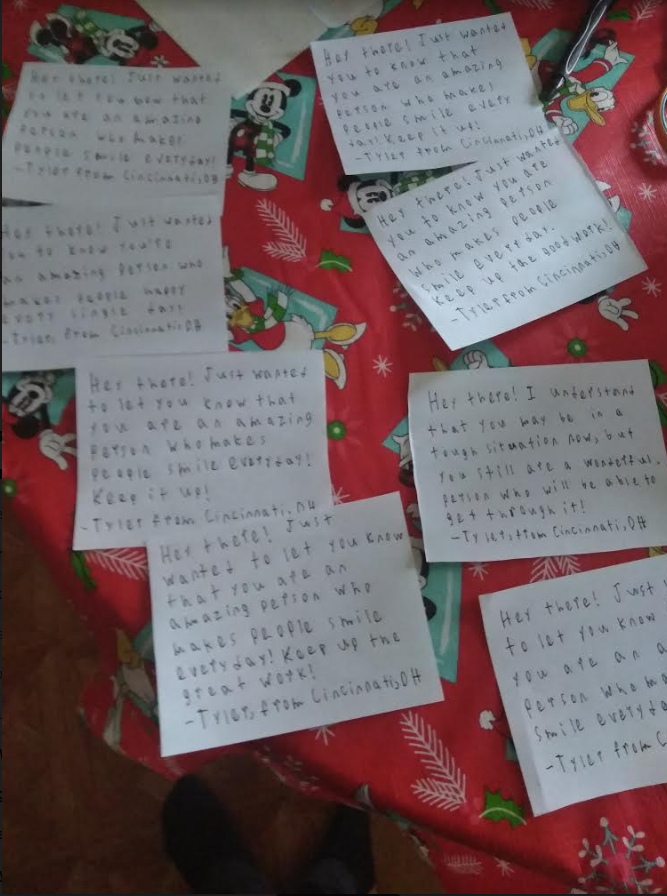 Hey there! Just wanted
to let you know that
you are an amazing
person who makes
people smile everyday!
-Tyler from Cincinnati, OH
Hey there! Just wanted
you to know you're
an amazing person who
makes people happy
every single day!
-Tyler, from Cincinnati, OH
Hey there! Just wanted
to let you know that
you are an amazing
person who makes
people smile everyday!
Keep it up!
-Tyler from Cincinnati, OH
Hey there! Just
wanted to let you know
that you are an
amazing person who
makes people smile
everyday! Keep up the
great work!
-Tyler, from Cincinnati, OH
Hey there! Just wanted
you to know that
you are an amazing
person who makes
people smile every
day! Keep it up!
-Tyler from Cincinnati, OH
Hey there! Just wanted
you to know you are
an amazing person
who makes people
smile everyday.
Keep up the good work!
-Tyler from Cincinnati, OH
Hey there! I understand
that you may be in a
tough situation now, but
you still are a wonderful
person who will be able to
get through it!
-Tyler, from Cincinnati, OH
Hey there! Just
to let you know
you are an a
person who ma
smile everyda
-Tyler from C